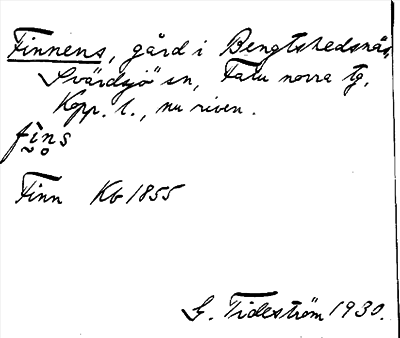 Finnens, gård i Bengtshedsnäs,
Svärdsjö sn, Falu norra tg,
Kopp. l., nu riven.
fìns
Finn Kb 1855
G. Tideström 1930.